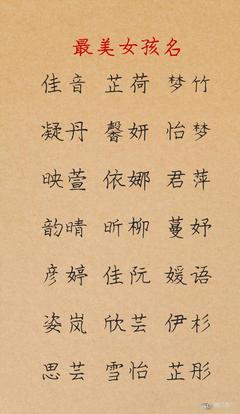 最美女孩名
佳音 芷荷 梦竹
凝丹 馨妍 怡梦
映萱 依娜 君萍
韵晴 昕柳 蔓妤
彦婷 佳阮 媛语
姿岚 欣芸 伊杉
思芸 雪怡 芷彤